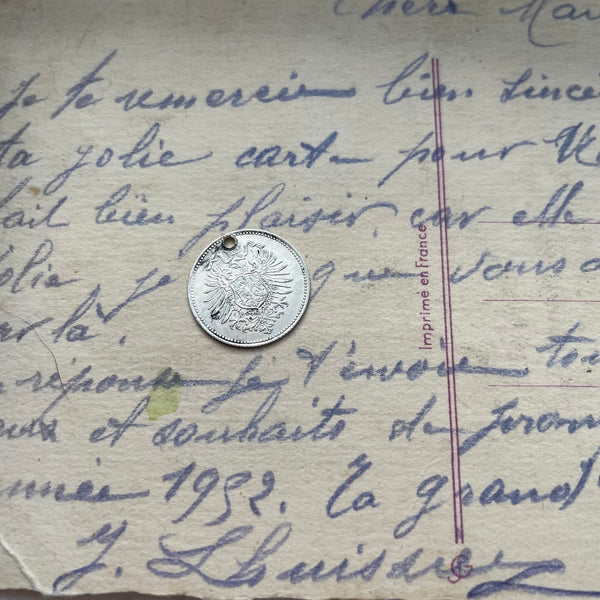 Cher Mau
Je te remercie bien sincè
ta jolie carte pour
fait bien plaisir, car elle
jolie, je que vous
par là.
réponse je t'envoie tou
et souhaits de bonn
année 1952. Ta grand
J. Lhuissier
Imprimé en France